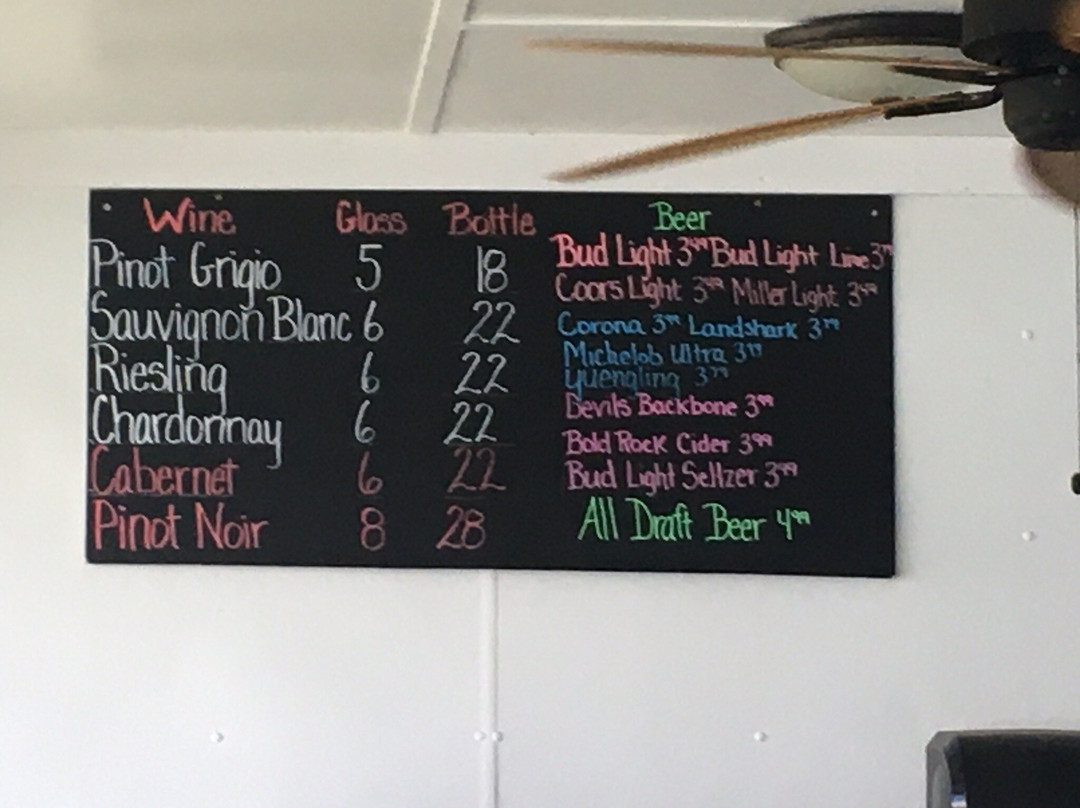 Wine Glass Bottle
Pinot Grigio 5 18
Sauvignon Blanc 6 22
Riesling 6 22
Chardonnay 6 22
Cabernet 6 22
Pinot Noir 8 28
Beer
Bud Light 3⁴⁹ Bud Light Lime
Coors Light 3⁴⁹ Miller Light 3⁴⁹
Corona Landshark 3⁷⁹
Michelob Ultra 3⁷⁹
Yuengling 3⁷⁹
Devils Backbone 3⁹⁹
Bold Rock Cider 3⁹⁹
Bud Light Seltzer 3⁹⁹
All Draft Beer 4⁹⁹